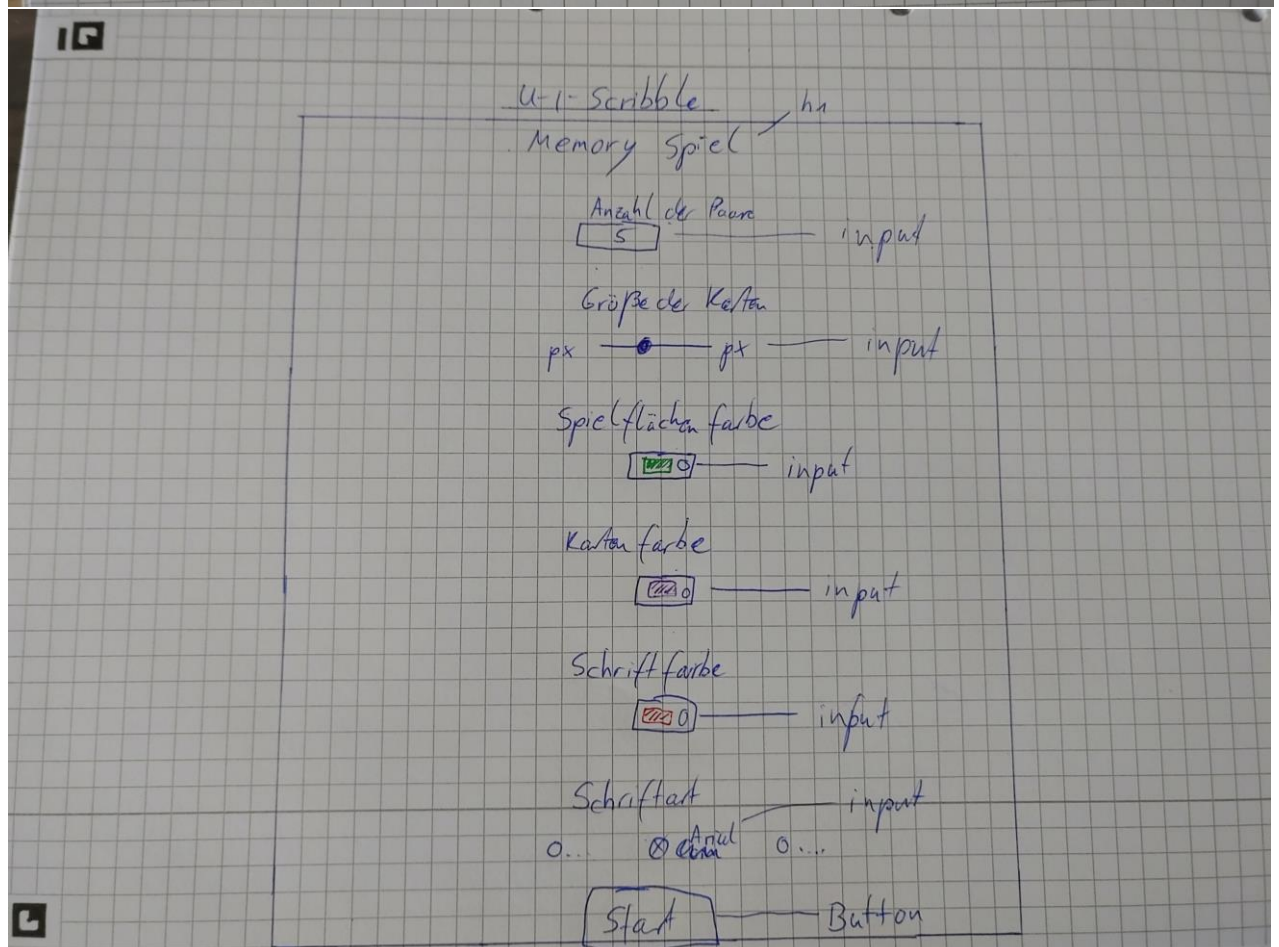 U-I-Scribble
Memory Spiel h1
Anzahl der Paare
5 input
Größe der Karten
px px input
Spielflächenfarbe
input
Kartenfarbe
input
Schriftfarbe
input
Schriftart input
O... Arial O....
Start Button